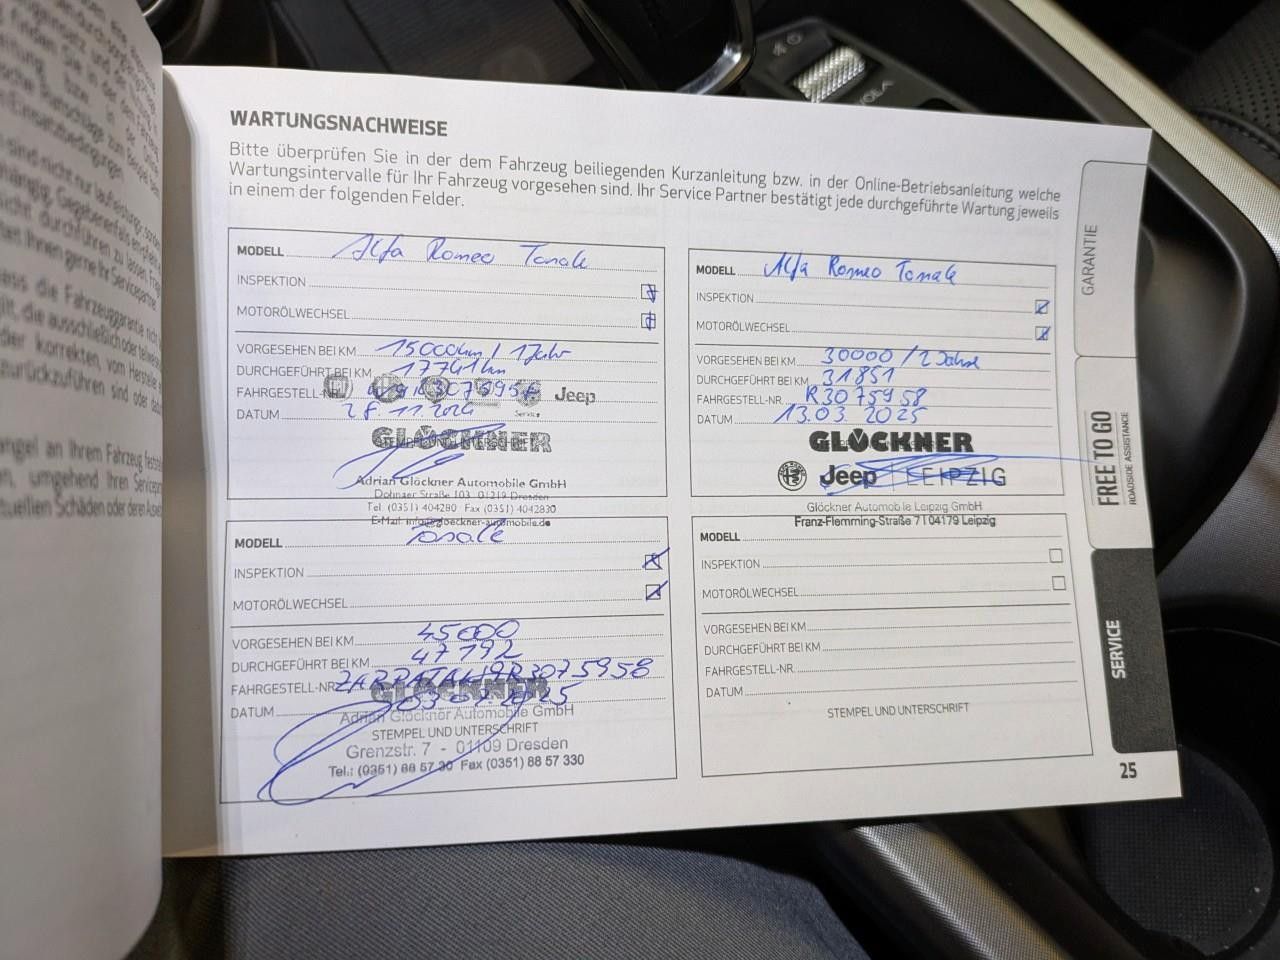 WARTUNGSNACHWEISE
Bitte überprüfen Sie in der dem Fahrzeug beiliegenden Kurzanleitung bzw. in der Online-Betriebsanleitung welche
Wartungsintervalle für Ihr Fahrzeug vorgesehen sind. Ihr Service Partner bestätigt jede durchgeführte Wartung jeweils
in einem der folgenden Felder.
MODELL Alfa Romeo Tonale
INSPEKTION
MOTORÖLWECHSEL
VORGESEHEN BEI KM 15000km / 1Jahr
DURCHGEFÜHRT BEI KM 17741km
FAHRGESTELL-NR.
Jeep
DATUM 28.11.2024
Service
GLÖCKNER
Adrian Glöckner Automobile GmbH
Dohnaer Straße 103 01219 Dresden
Tel (0351) 404280 Fax (0351) 4042830
E-Mail: info@gloeckner-automobile.de
MODELL Alfa Romeo Tonale
INSPEKTION
MOTORÖLWECHSEL
VORGESEHEN BEI KM 30000 / 2 Jahre
DURCHGEFÜHRT BEI KM 31851
FAHRGESTELL-NR. R3075958
DATUM 13.03.2025
GLÖCKNER
Jeep LEIPZIG
Glöckner Automobile Leipzig GmbH
Franz-Flemming-Straße 7 | 04179 Leipzig
MODELL Tonale
INSPEKTION
MOTORÖLWECHSEL
VORGESEHEN BEI KM 45000
DURCHGEFÜHRT BEI KM 47792
FAHRGESTELL-NR. R3075958
GLÖCKNER
DATUM 03.07.2025
Adrian Glöckner Automobile GmbH
STEMPEL UND UNTERSCHRIFT
Grenzstr. 7 - 01109 Dresden
Tel.: (0351) 88 57 30 Fax (0351) 88 57 330
MODELL
INSPEKTION
MOTORÖLWECHSEL
VORGESEHEN BEI KM
DURCHGEFÜHRT BEI KM
FAHRGESTELL-NR.
DATUM
STEMPEL UND UNTERSCHRIFT
GARANTIE
FREE TO GO
ROADSIDE ASSISTANCE
SERVICE
25